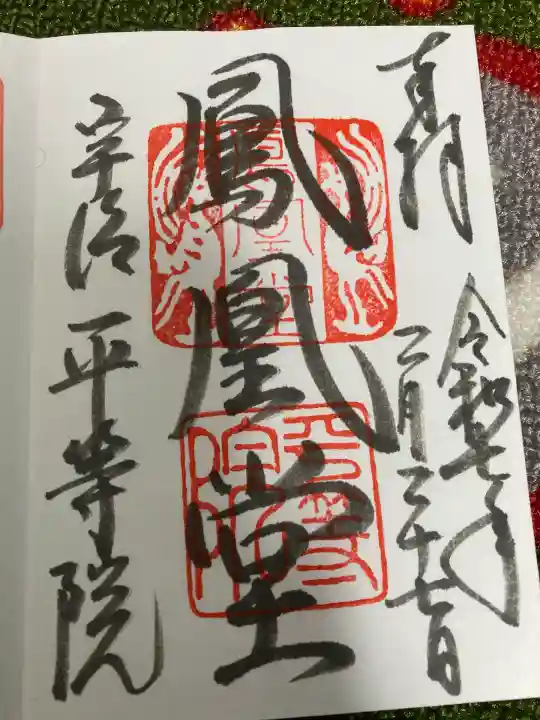 奉拝
令和七年
二月二十七日
鳳凰堂
鳳凰堂
平等院
宇治 平等院